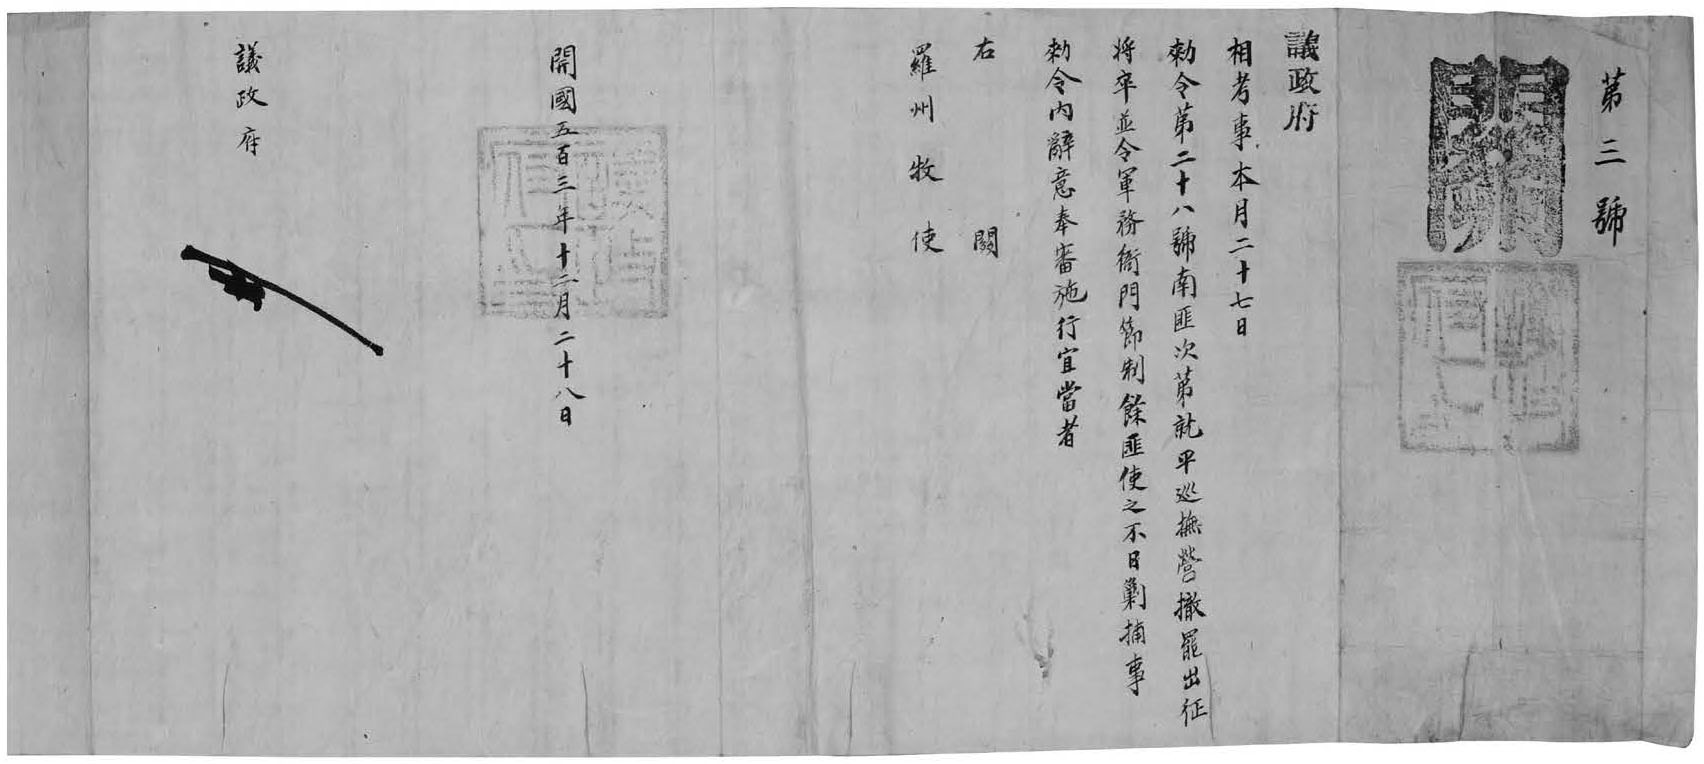 第三號
關
議政府
相考事本月二十七日
勅令第二十八號南匪次第就平巡撫營撤罷出征
將卒並令軍務衙門節制餘匪使之不日剿捕事
勅令內辭意奉審施行宜當者
右 關
羅州牧使
開國五百三年十二月二十八日
議政府